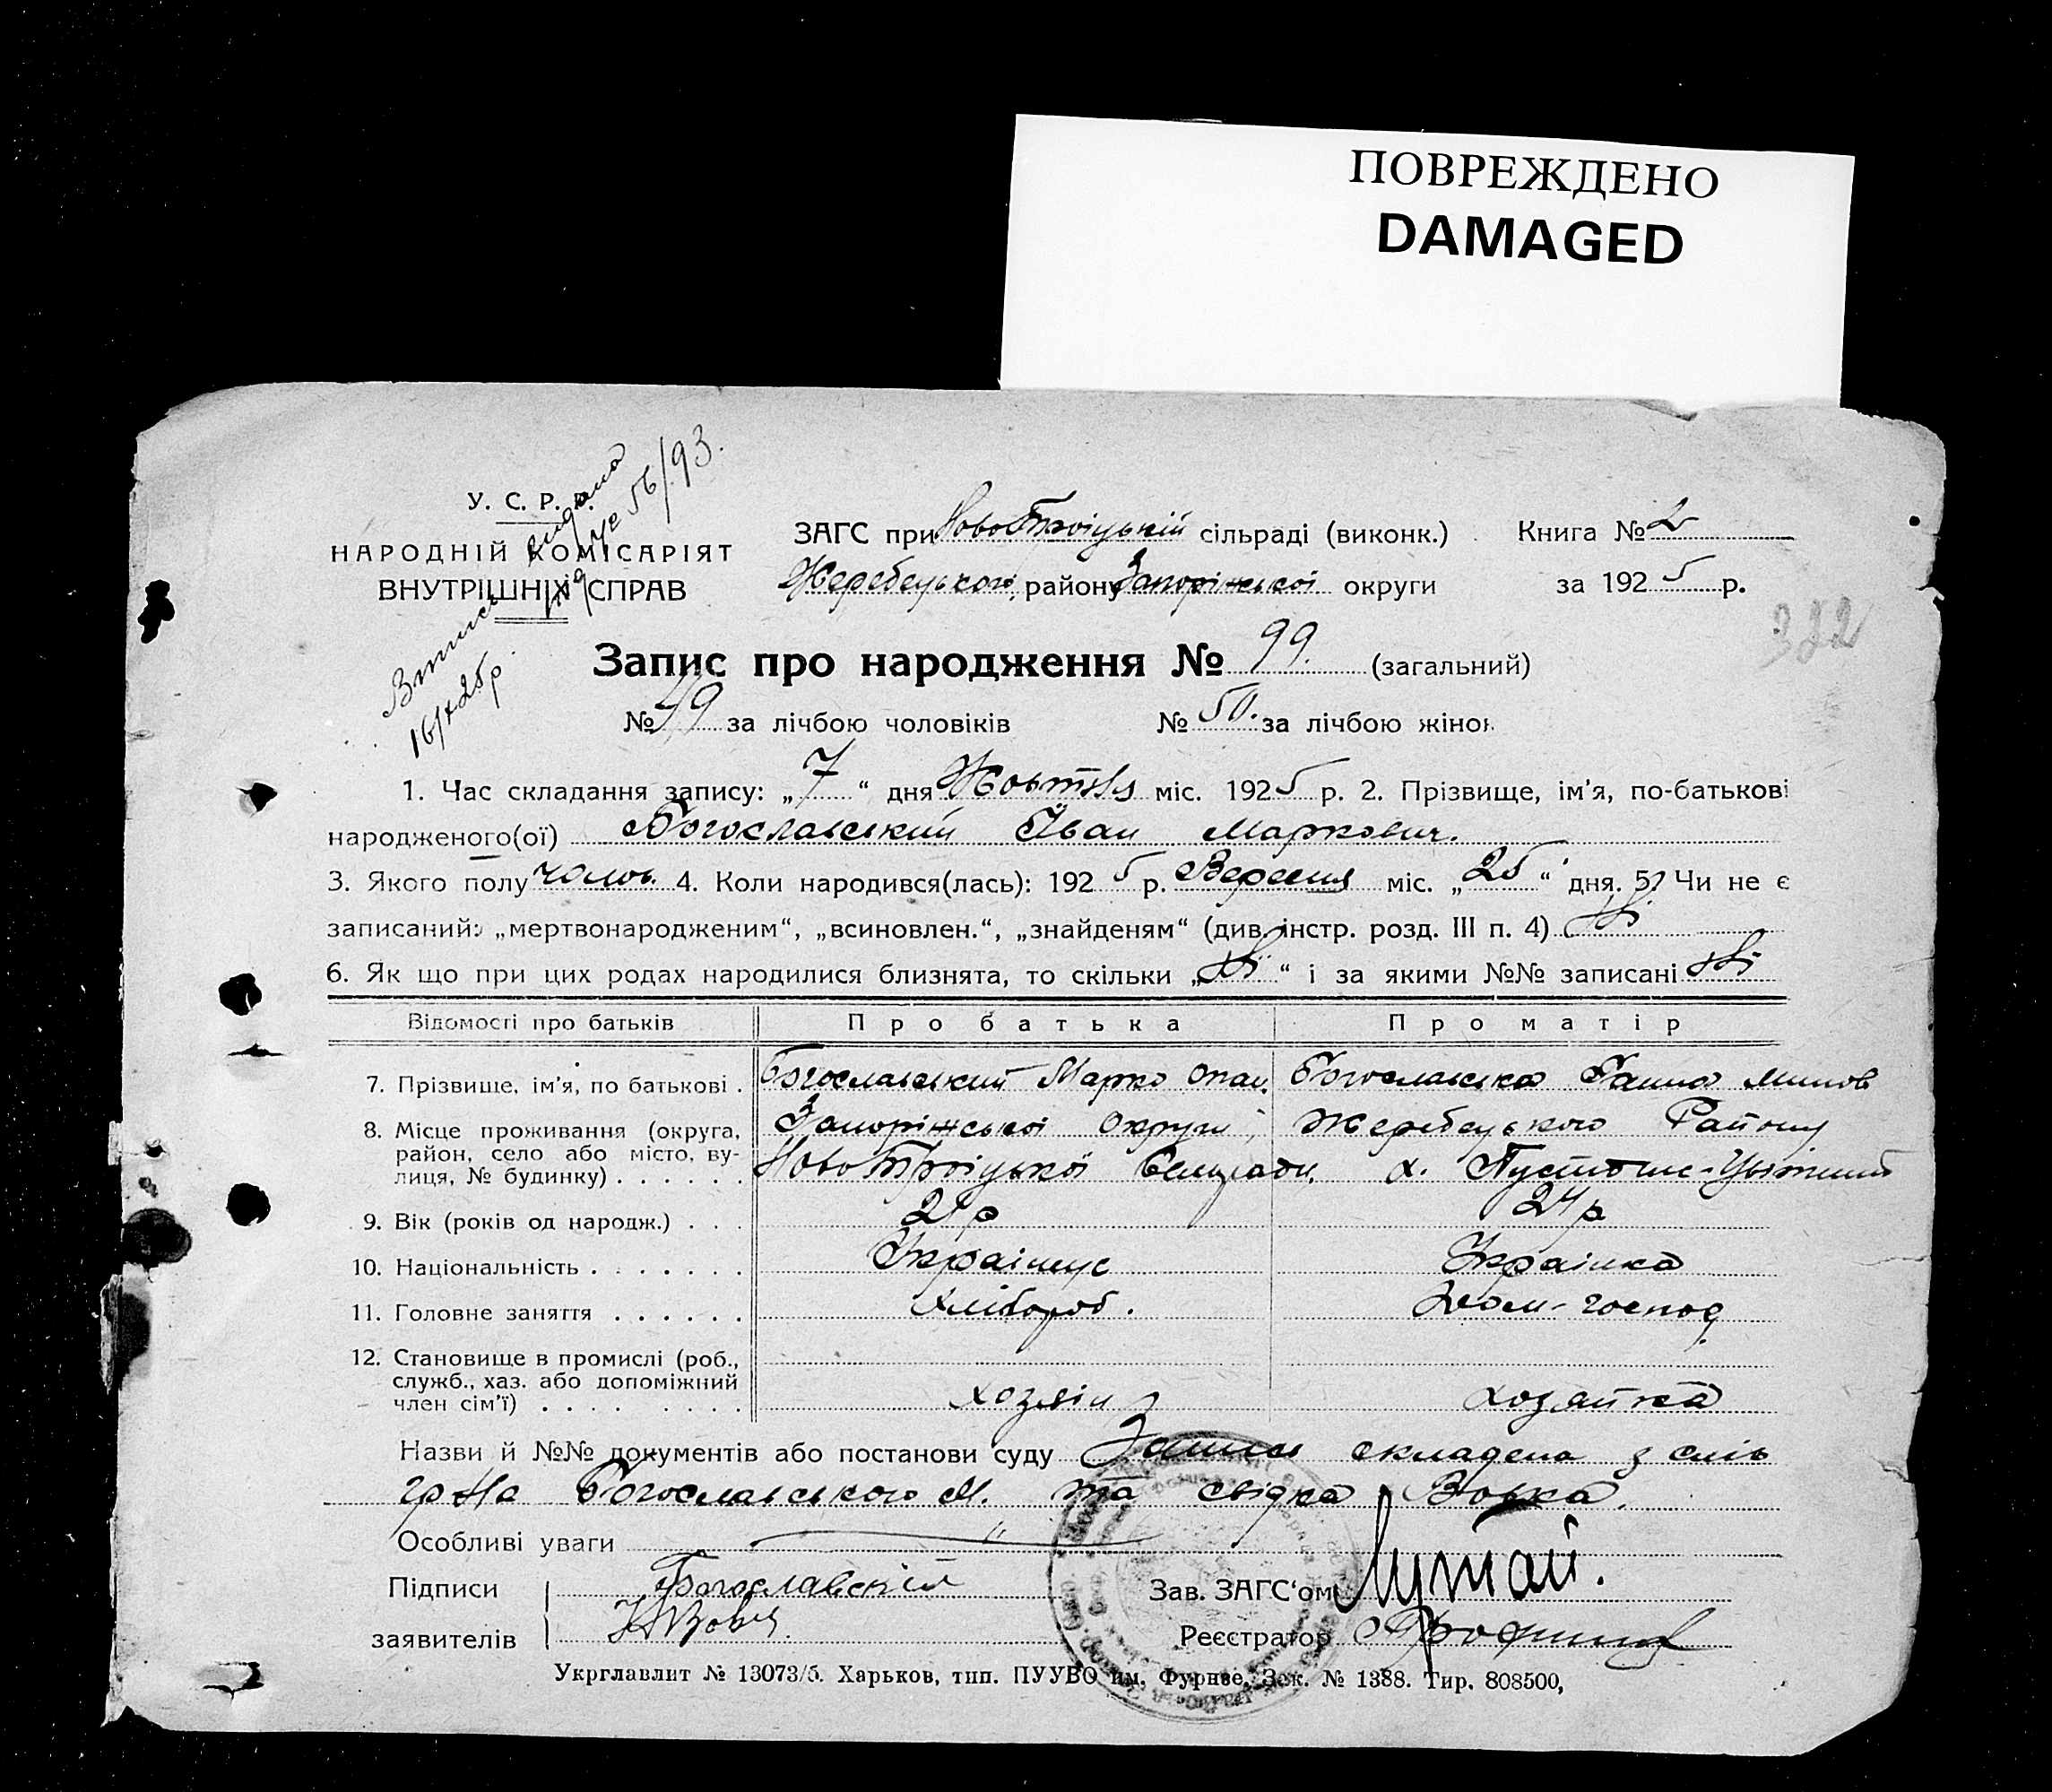 ПОВРЕЖДЕНО
DAMAGED
У. С. Р. Р.
НАРОДНІЙ КОМІСАРІЯТ
ВНУТРІШНІХ СПРАВ
Випись видана
16/X 25р. № 56/93.
ЗАГС при НовоТроіцькій сільраді (виконк.) Книга № 2
Жеребецького району Запоріжськоі округи за 1925 р.
322
Запис про народження № 99. (загальний)
№ 49 за лічбою чоловіків № 50. за лічбою жінок
1. Час складання запису: „7“ дня Жовтня міс. 1925 р. 2. Прізвище, ім'я, по-батькові
народженого(ої) Богославський Іван Маркович.
3. Якого полу чолов. 4. Коли народився(лась): 1925 р. Вересня міс. „25“ дня. 5. Чи не є
записаний: „мертвонародженим“, „всиновлен.“, „знайденям“ (див. інстр. розд. III п. 4) Ні
6. Як що при цих родах народилися близнята, то скільки „Ні“ і за якими №№ записані Ні
Відомості про батьків Про батька Про матір
7. Прізвище, ім'я, по батькові . Богославський Марко Опан. Богославська Ганна
8. Місце проживання (округа, Запоріжськоі Округи, Жеребецького Району
район, село або місто, ву-
лиця, № будинку) . . . . . . НовоТроіцькоі Сельради, х.
9. Вік (років од народж.) . . . 24р
10. Національність . . . . . . . Украінец Украінка
11. Головне заняття . . . . . . Хлібороб. Дом-господ
12. Становище в промислі (роб.,
служб., хаз. або допоміжний
член сім'ї) . . . . . . . . хозяін хозяйка
Назви й №№ документів або постанови суду Запис складена з слів
гр-на Богославського М. та свідка Вовка.
Особливі уваги "
Підписи Богославскій Зав. ЗАГС'ом Лутай.
заявителів Реєстратор
Укрглавлит № 13073/5. Харьков, тип. ПУУВО им. Фрунзе, Зак. № 1388. Тир. 808500,